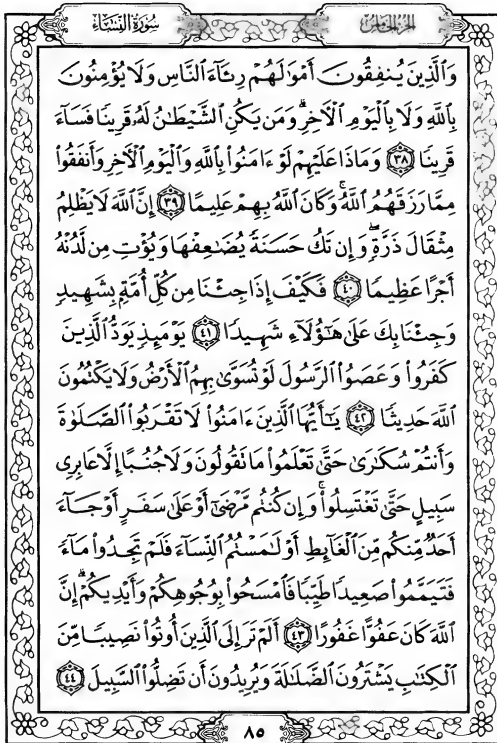 الجزء الخامس
سورة النساء
وَالَّذِينَ يُنفِقُونَ أَمْوَٰلَهُمْ رِئَآءَ ٱلنَّاسِ وَلَا يُؤْمِنُونَ
بِٱللَّهِ وَلَا بِٱلْيَوْمِ ٱلْأَخِرِ ۗ وَمَن يَكُنِ ٱلشَّيْطَٰنُ لَهُۥ قَرِينًا فَسَآءَ
قَرِينًا ٣٨ وَمَاذَا عَلَيْهِمْ لَوْ ءَامَنُوا۟ بِٱللَّهِ وَٱلْيَوْمِ ٱلْأَخِرِ وَأَنفَقُوا۟
مِمَّا رَزَقَهُمُ ٱللَّهُ ۚ وَكَانَ ٱللَّهُ بِهِمْ عَلِيمًا ٣٩ إِنَّ ٱللَّهَ لَا يَظْلِمُ
مِثْقَالَ ذَرَّةٍ ۖ وَإِن تَكُ حَسَنَةً يُضَٰعِفْهَا وَيُؤْتِ مِن لَّدُنْهُ
أَجْرًا عَظِيمًا ٤٠ فَكَيْفَ إِذَا جِئْنَا مِن كُلِّ أُمَّةٍۭ بِشَهِيدٍ
وَجِئْنَا بِكَ عَلَىٰ هَٰٓؤُلَآءِ شَهِيدًا ٤١ يَوْمَئِذٍ يَوَدُّ ٱلَّذِينَ
كَفَرُوا۟ وَعَصَوُا۟ ٱلرَّسُولَ لَوْ تُسَوَّىٰ بِهِمُ ٱلْأَرْضُ وَلَا يَكْتُمُونَ
ٱللَّهَ حَدِيثًا ٤٢ يَٰٓأَيُّهَا ٱلَّذِينَ ءَامَنُوا۟ لَا تَقْرَبُوا۟ ٱلصَّلَوٰةَ
وَأَنتُمْ سُكَٰرَىٰ حَتَّىٰ تَعْلَمُوا۟ مَا تَقُولُونَ وَلَا جُنُبًا إِلَّا عَابِرِى
سَبِيلٍ حَتَّىٰ تَغْتَسِلُوا۟ ۚ وَإِن كُنتُم مَّرْضَىٰٓ أَوْ عَلَىٰ سَفَرٍ أَوْ جَآءَ
أَحَدٌ مِّنكُم مِّنَ ٱلْغَآئِطِ أَوْ لَٰمَسْتُمُ ٱلنِّسَآءَ فَلَمْ تَجِدُوا۟ مَآءً
فَتَيَمَّمُوا۟ صَعِيدًا طَيِّبًا فَٱمْسَحُوا۟ بِوُجُوهِكُمْ وَأَيْدِيكُمْ ۗ إِنَّ
ٱللَّهَ كَانَ عَفُوًّا غَفُورًا ٤٣ أَلَمْ تَرَ إِلَى ٱلَّذِينَ أُوتُوا۟ نَصِيبًا مِّنَ
ٱلْكِتَٰبِ يَشْتَرُونَ ٱلضَّلَٰلَةَ وَيُرِيدُونَ أَن تَضِلُّوا۟ ٱلسَّبِيلَ ٤٤
٨٥